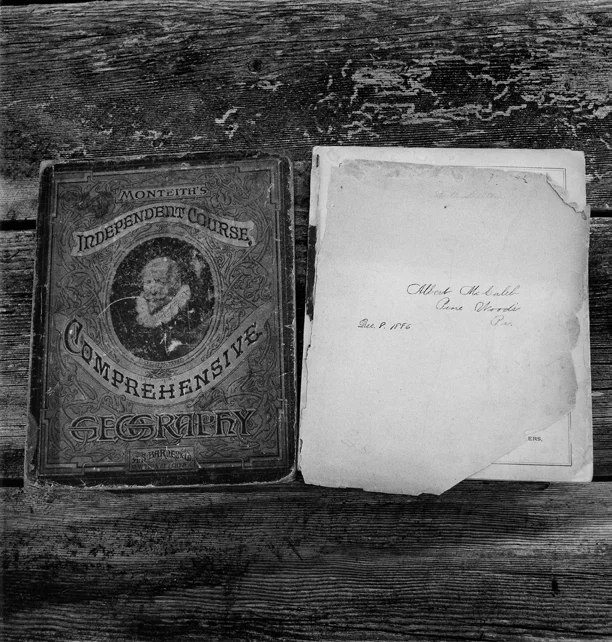 MONTEITH'S
INDEPENDENT COURSE,
COMPREHENSIVE
GEOGRAPHY
Albert McCaleb
Pa.
Dec. 8, 1886
ERS.